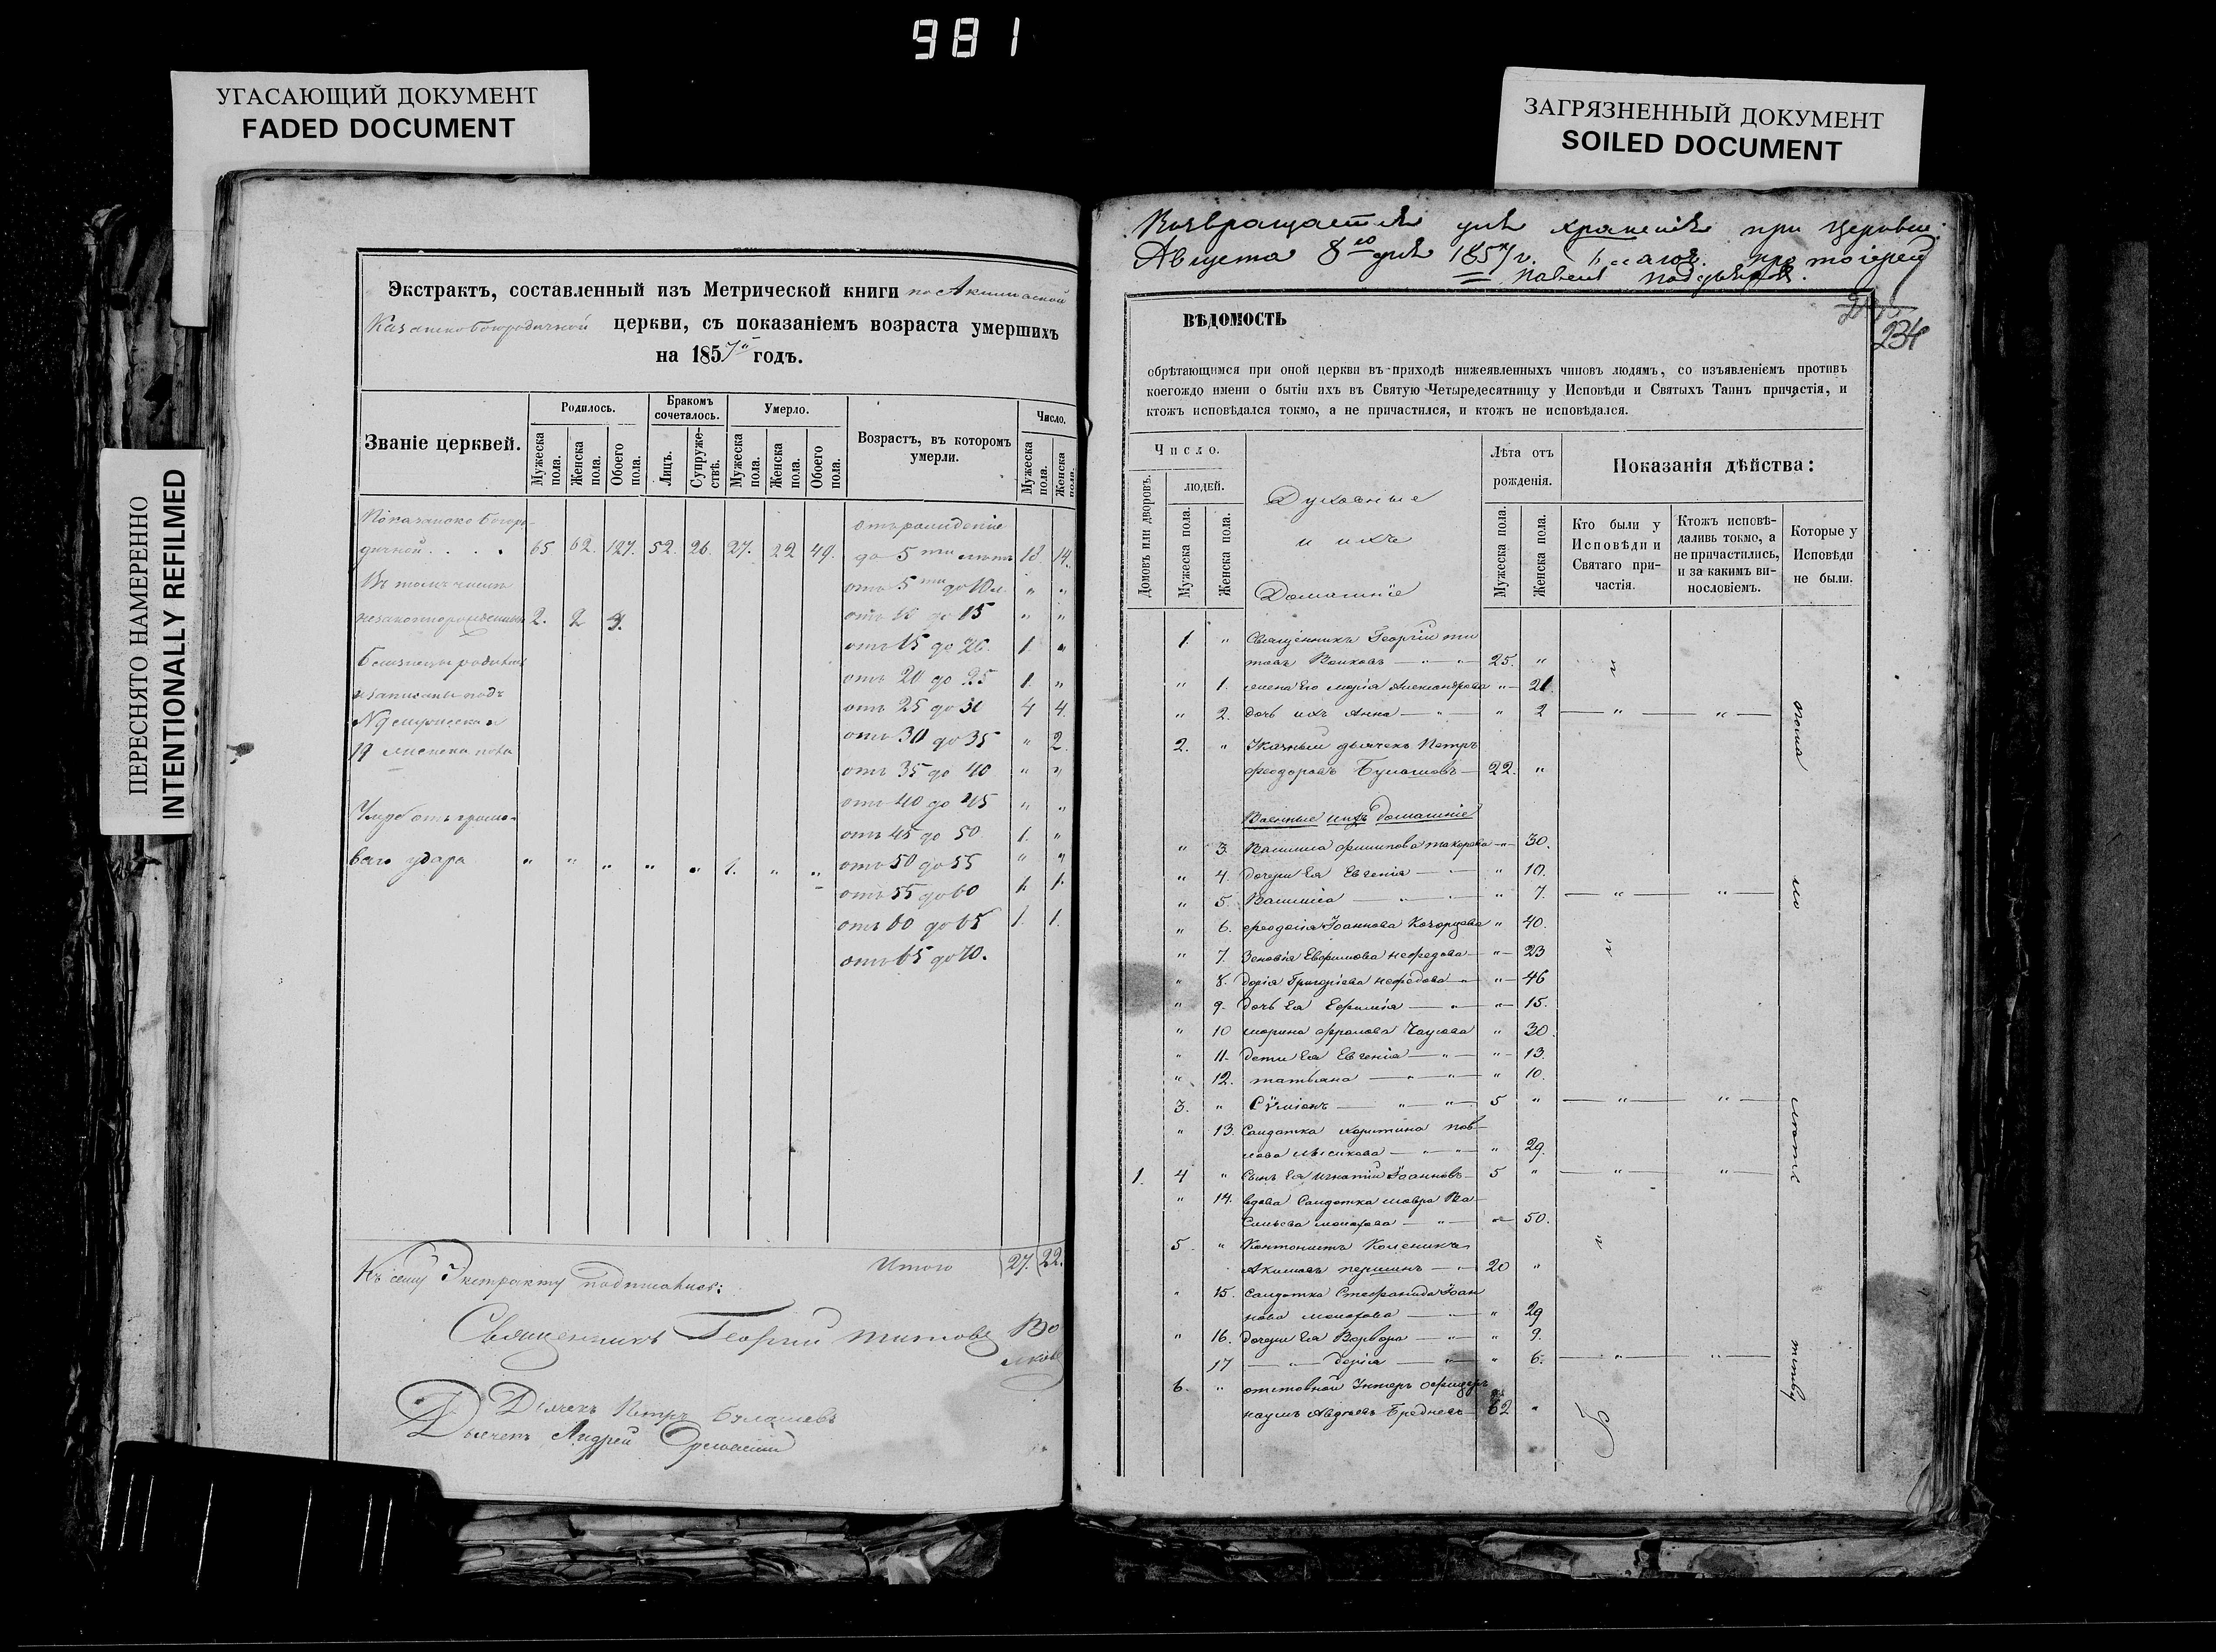 981
УГАСАЮЩИЙ ДОКУМЕНТ
FADED DOCUMENT
ЗАГРЯЗНЕННЫЙ ДОКУМЕНТ
SOILED DOCUMENT
ПЕРЕСНЯТО НАМЕРЕННО
INTENTIONALLY REFILMED
Экстрактъ, составленный изъ Метрической книги по
Казанскобогородичной церкви, съ показаніемъ возраста умершихъ
на 1857 годъ.
Званіе церквей.
Родилось.
Бракомъ сочеталось.
Умерло.
Возрастъ, въ которомъ умерли.
Число.
Мужеска пола.
Женска пола.
Обоего пола.
Лицъ.
Супружествъ.
Мужеска пола.
Женска пола.
Обоего пола.
Мужеска пола.
Женска пола.
отъ рожденія
дичной . . . . 65. 62. 127. 52. 26. 27. 22 49. до 5 ти лѣтъ 18 14.
Въ томъ числѣ
отъ 5 ти до 10 л. " "
незаконнорожденныхъ 2. 2 4.
отъ 10 до 15 " "
отъ 15 до 20. 1. "
отъ 20 до 25 1. "
отъ 25 до 30 4 4.
отъ 30 до 35 " 2.
19 женска пола
отъ 35 до 40 " "
отъ 40 до 45 " "
отъ 45 до 50. 1. "
ваго удара " " " " " 1. " " отъ 50 до 55 " "
отъ 55 до 60 1. 1.
отъ 60 до 65 1. 1.
отъ 65 до 70.
Итого 27. 22.
Къ сему Экстракту подписались:
Священникъ Георгій Титовъ Волковъ
Дьячекъ Петръ Булашевъ
Дьячекъ Андрей
Возвращается для храненія при церкви.
Августа 8го дня 1857 г. Благоч. протоіерей
Павелъ
234
ВѢДОМОСТЬ
обрѣтающимся при оной церкви въ приходѣ нижеявленныхъ чиновъ людямъ, со изъявленіемъ противъ
коегождо имени о бытіи ихъ въ Святую Четыредесятницу у Исповѣди и Святыхъ Таинъ причастія, и
ктожъ исповѣдался токмо, а не причастился, и ктожъ не исповѣдался.
Число.
Домовъ или дворовъ.
людей.
Мужеска пола.
Женска пола.
Духовные
и ихъ
Домашніе
Лѣта отъ рожденія.
Мужеска пола.
Женска пола.
Показанія дѣйства:
Кто были у Исповѣди и Святаго причастія.
Ктожъ исповѣдаливь токмо, а не причастились, и за какимъ винословіемъ.
Которые у Исповѣди не были.
1. " Священникъ Георгій Ти
товъ Волковъ 25. "
" 1. жена Его Марія Александрова " 21.
" 2. дочь ихъ Анна " 2
2. " Указный дьячекъ Петръ
Феодоровъ Булашовъ 22. "
Военные ихъ домашніе
" 3. " 30.
" 4. дочери Ея Евгенія " 10.
" 5. " 7.
" 6. Феодосія Іоаннова " 40.
" 7. Зеновія Евфимова Нефедова " 23
" 8. Дарія Григоріева Нефедова " 46
" 9. дочь Ея Евфимія " 15.
" 10 Марина Фролова " 30.
" 11. дети Ея Евгенія " 13.
" 12. Татьяна " 10.
3. " Сѵміонъ 5 "
" 13. Салдатка Харитина Пав
лова " 29.
1. 4 " Сынъ Ея Игнатій Іоанновъ 5 "
" 14. вдова Салдатка Мавра Ва
сильева " 50.
5 " Кантонистъ
Акимовъ 20 "
" 15. Салдатка Стефанида Іоан
нова " 29
" 16. дочери Ея Варвара " 9.
17 Дарія " 6.
6. " отставной Унтеръ офицеръ
Наумъ Авдѣевъ 62 "